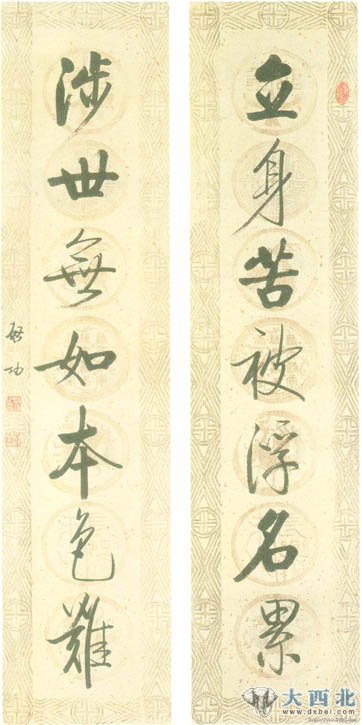 立身苦被浮名累
涉世無如本色難
啓功
大西北
www.dxbei.com